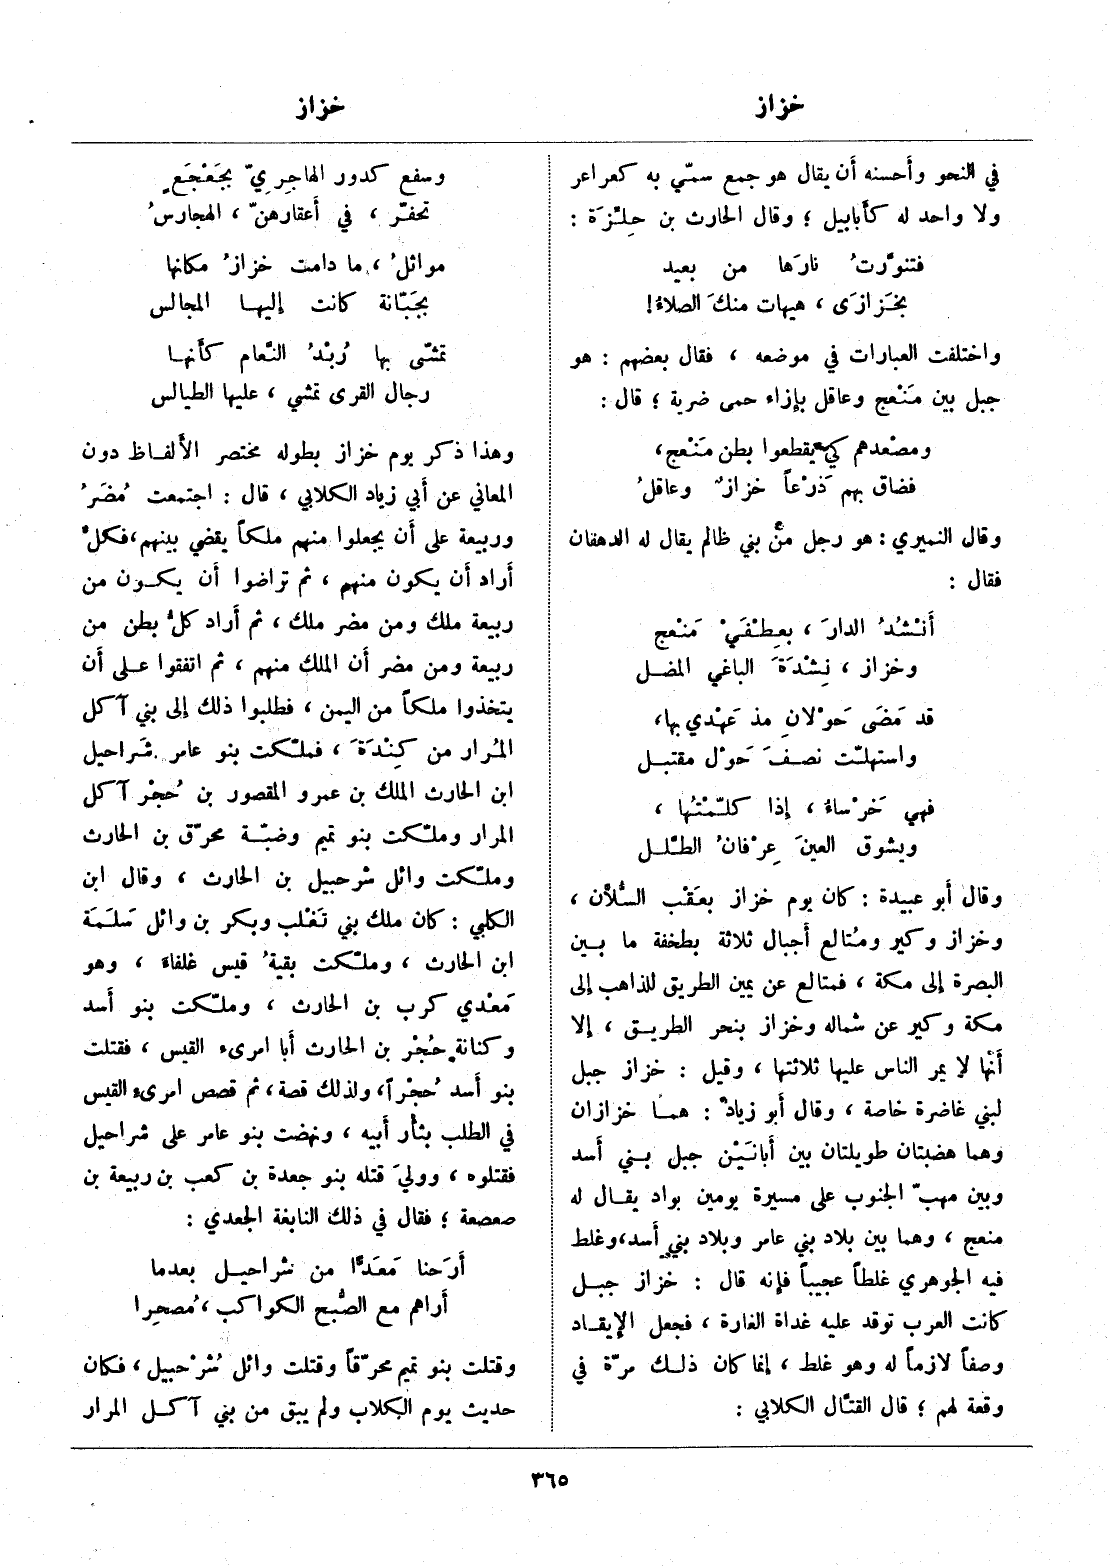 خزاز
خزاز
في النحو وأحسنه أن يقال هو جمع سمّي به كعراعر
ولا واحد له كأبابيل ؛ وقال الحارث بن حِلِّزَة :
فتنوَّرتُ نارَها من بعيد
بخَزازَى ، هيهات منكَ الصلاءُ!
واختلفت العبارات في موضعه ، فقال بعضهم : هو
جبل بين مَنْعج وعاقل بإزاء حمى ضرية ؛ قال :
ومصْعدهم كي يقطعوا بطن مَنْعج،
فضاق بهم ذَرْعاً خزازٌ وعاقلُ
وقال النميري : هو رجل من بني ظالم يقال له الدهقان
فقال :
أَنْشُدُ الدارَ ، بعِطْفَيْ مَنْعج
وخزاز ، نِشْدَةَ الباغي المضل
قد مَضَى حَوْلانِ مذ عَهْدي بها،
واستهلّت نصفَ حَوْل مقتبل
فهي خَرْساءُ ، إذا كلّمْتُها ،
ويشوق العينَ عِرْفانُ الطّلل
وقال أبو عبيدة : كان يوم خزاز بعَقْب السُّلاّن ،
وخزاز وكير ومُتالع أجبال ثلاثة بطخفة ما بين
البصرة إلى مكة ، فمتالع عن يمين الطريق للذاهب إلى
مكة وكير عن شماله وخزاز بنحر الطريق ، إلا
أنّها لا يمر الناس عليها ثلاثتها ، وقيل : خزاز جبل
لبني غاضرة خاصة ، وقال أبو زياد : هما خزازان
وهما هضبتان طويلتان بين أبانَيْن جبل بني أسد
وبين مهبّ الجنوب على مسيرة يومين بواد يقال له
منعج ، وهما بين بلاد بني عامر وبلاد بني أسد، وغلط
فيه الجوهري غلطاً عجيباً فإنه قال : خزاز جبل
كانت العرب توقد عليه غداة الغارة ، فجعل الإيقاد
وصفاً لازماً له وهو غلط ، إنما كان ذلك مرّة في
وقعة لهم ؛ قال القتّال الكلابي :
وسفع كدور الهاجِرِيّ بجَعْجَعٍ
تحفّر ، في أعقارهنّ ، الهجارسُ
موائلُ ، ما دامت خزازُ مكانها
بجَبّانة كانت إليها المجالس
تمشّى بها رُبْدُ النّعام كأنها
رجال القرى تمشي ، عليها الطيالس
وهذا ذكر يوم خزاز بطوله مختصر الألفاظ دون
المعاني عن أبي زياد الكلابي ، قال : اجتمعت مُضَرُ
وربيعة على أن يجعلوا منهم ملكاً يقضي بينهم، فكلٌ
أراد أن يكون منهم ، ثم تراضوا أن يكون من
ربيعة ملك ومن مضر ملك ، ثم أراد كلُّ بطن من
ربيعة ومن مضر أن الملك منهم ، ثم اتفقوا على أن
يتخذوا ملكاً من اليمن ، فطلبوا ذلك إلى بني آكل
المُرار من كِنْدَةَ ، فملّكت بنو عامر شَراحيل
ابن الحارث الملك بن عمرو المقصور بن حُجْر آكل
المرار وملّكت بنو تميم وضبّة محرّق بن الحارث
وملّكت وائل شرحبيل بن الحارث ، وقال ابن
الكلبي : كان ملك بني تَغْلب وبكر بن وائل سَلَمَة
ابن الحارث ، وملّكت بقيةُ قيس غلفاءَ ، وهو
مَعْدي كرب بن الحارث ، وملّكت بنو أسد
وكنانة حُجْر بن الحارث أبا امرىء القيس ، فقتلت
بنو أسد حُجْراً، ولذلك قصة، ثم قصص امرىء القيس
في الطلب بثأر أبيه ، ونهضت بنو عامر على شراحيل
فقتلوه ، ووليَ قتله بنو جعدة بن كعب بن ربيعة بن
صعصعة ؛ فقال في ذلك النابغة الجعدي :
أَرَحنا مَعَدًّا من شراحيل بعدما
أراهم مع الصُّبح الكواكب، مُصحِرا
وقتلت بنو تميم محرّقاً وقتلت وائل شُرَحْبيل ، فكان
حديث يوم الكلاب ولم يبق من بني آكل المرار
٣٦٥